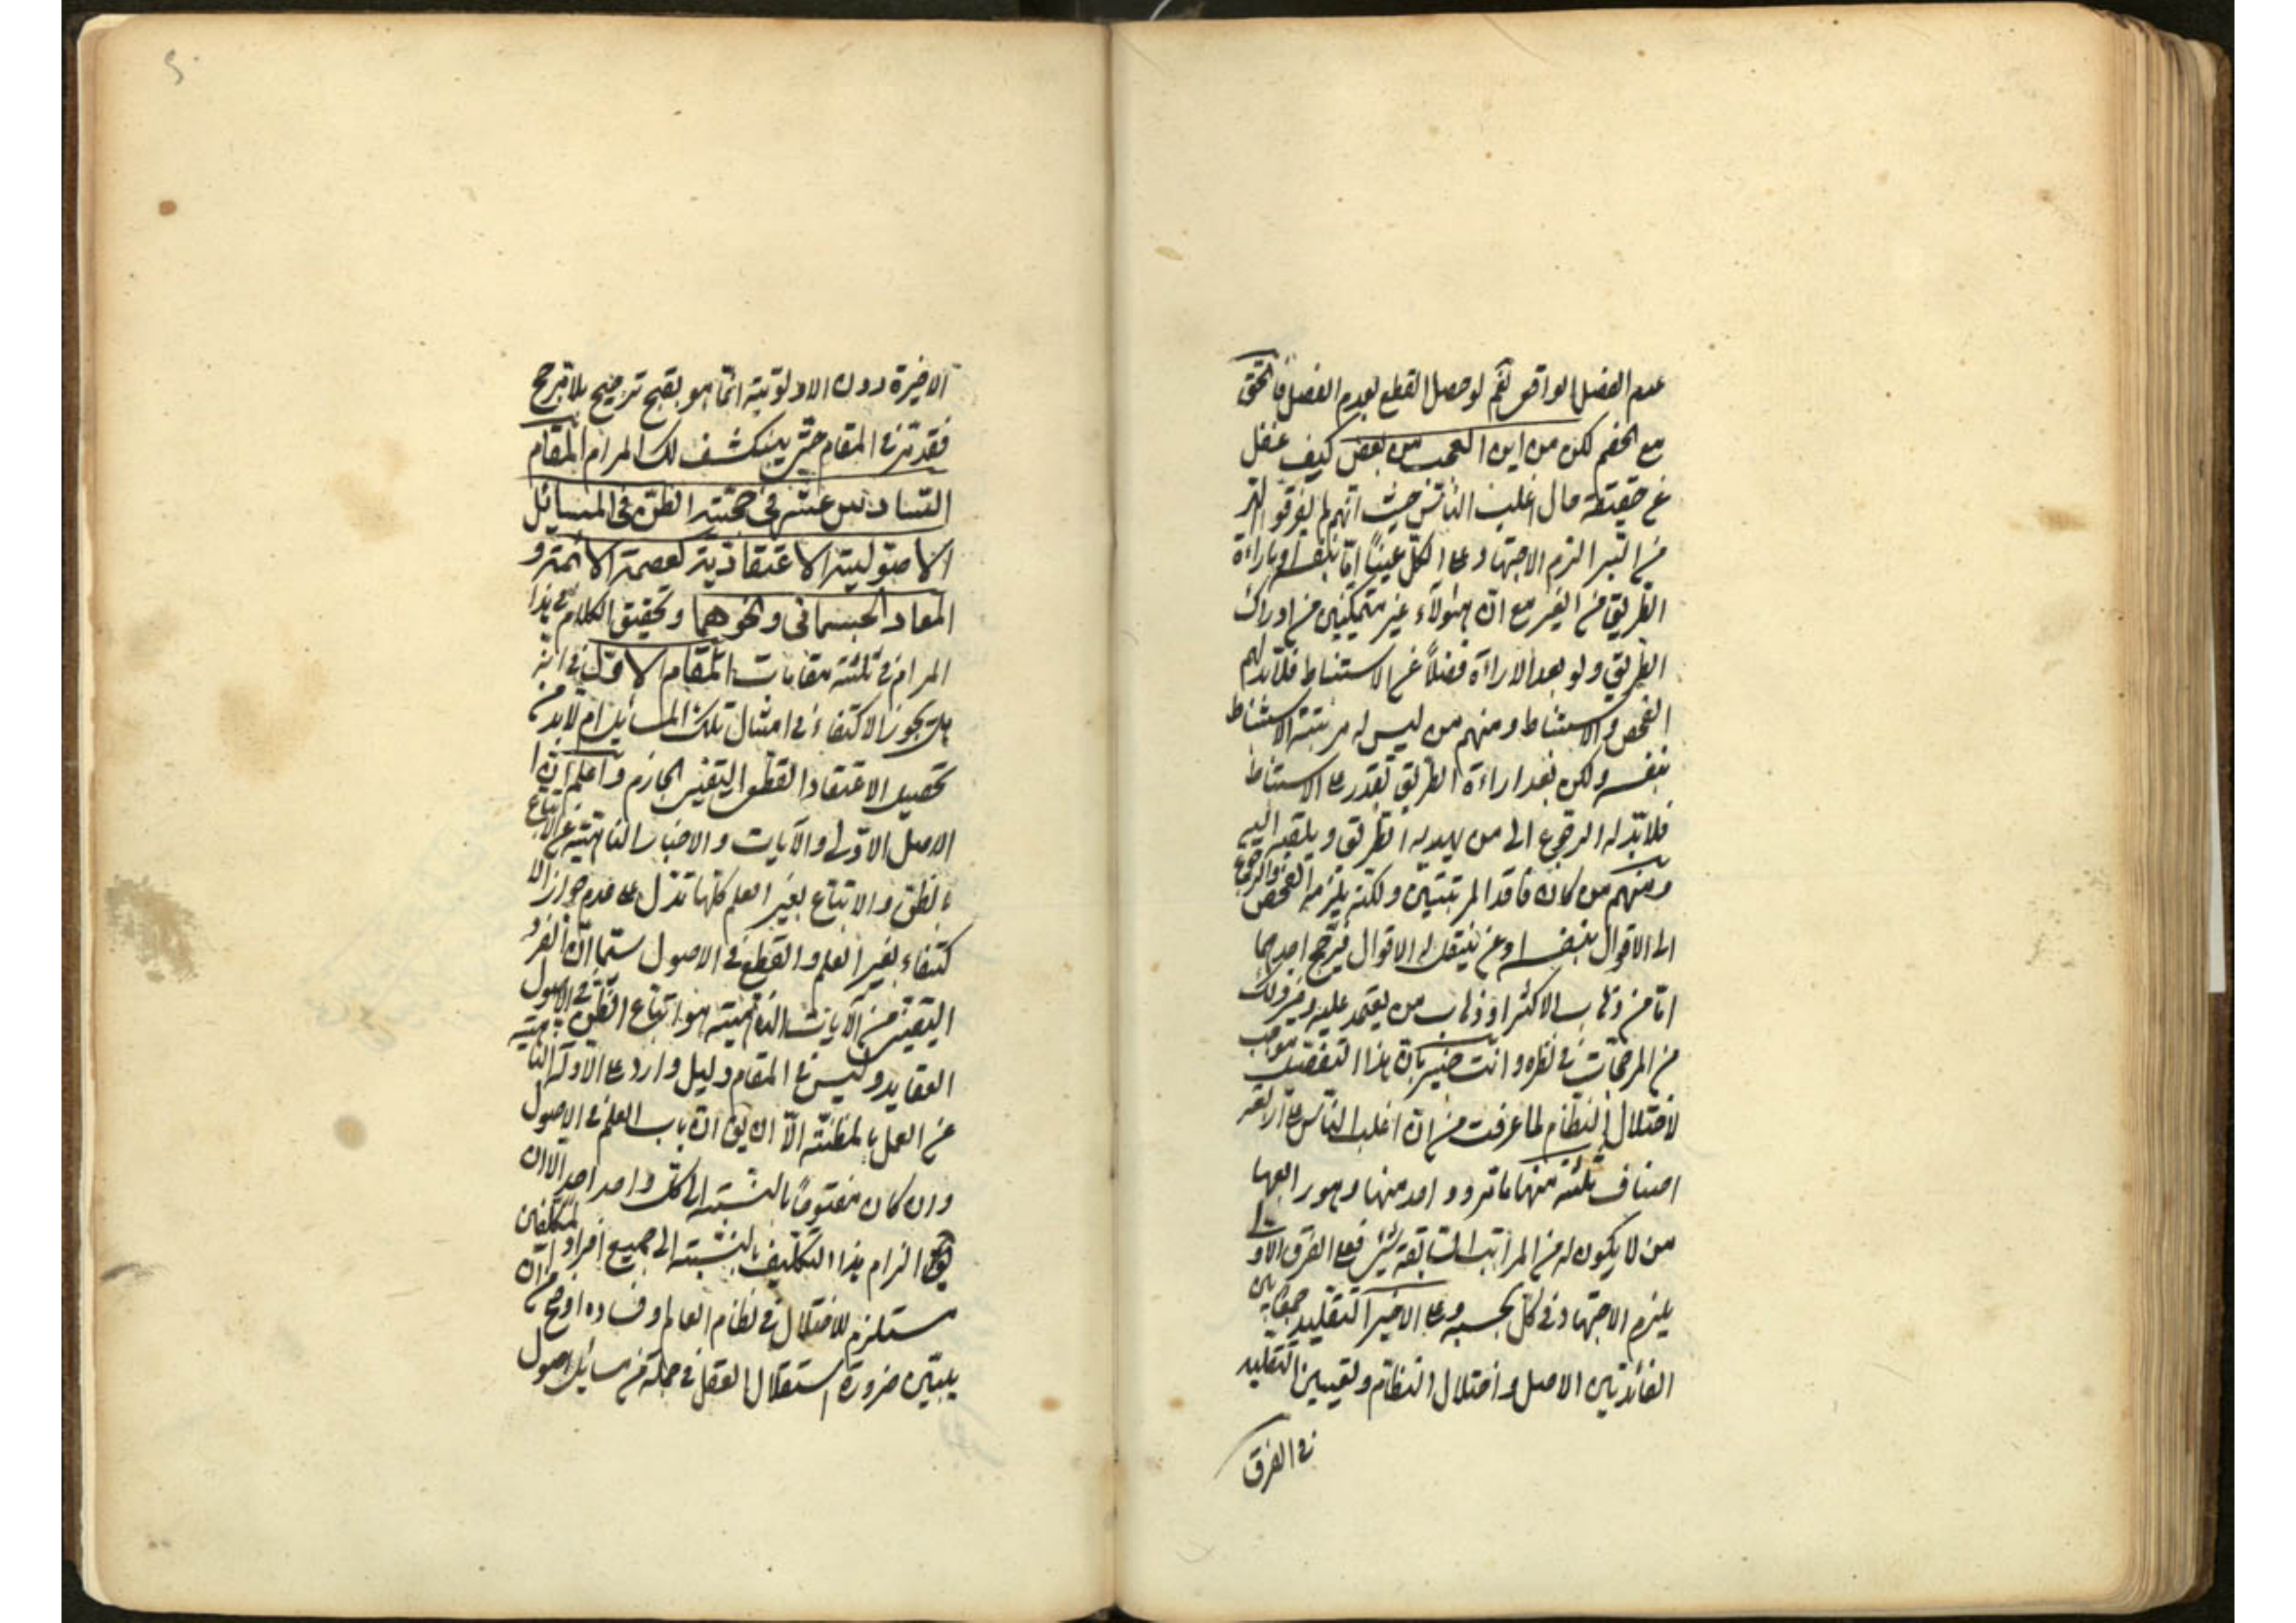 عدم الفصل الواقعى نعم لو حصل القطع بعدم الفصل فالحق
مع الخصم لكن من اين العجب من بعض كيف غفل
عن حقيقة حال اغلب الناس حيث انهم لم يفرقوا
من الزم الاجتهاد على الكل عينا اما بنفسه او باراءة
الطريق من الغير مع ان هؤلاء غير متمكنين من ادراك
الطريق ولو بعد الاراءة فضلا عن الاستنباط فلابد لهم
الفحص والاستنباط ومنهم من ليس له مرتبة الاستنباط
بنفسه ولكن بعد اراءة الطريق يقدر على الاستنباط
فلابد له الرجوع الى من يهديه الطريق ويلقيه اليه
ومنهم من كان فاقد المرتبتين ولكنه يلزمه الفحص والرجوع
الى الاقوال بنفسه او عن ينقل له الاقوال فيرجح احدهما
اما من ذهاب الاكثر او ذهاب من يعتمد عليه وغير ذلك
من المرجحات فى نظره وانت خبير بان هذا التفصيل موجب
لاختلال النظام لما عرفت من ان اغلب الناس على اربعة
اصناف ثلثة منها ما مر وواحد منها وهو رابعها
من لا يكون له من المراتب السابقة شئ فعلى الفرق الاولى
يلزم الاجتهاد فى كل بحسبه وعلى الاخير التقليد جمعا بين
القائدتين الاصل واختلال النظام وتعيين التقليد
فى الفرق
الاخيرة دون الاولوية انما هو بقبح ترجيح بلا مرجح
فقد تدبر فى المقام حتى ينكشف لك المرام المقام
السادس عشر فى حجية الظن فى المسائل
الاصولية الاعتقادية كعصمة الائمة و
المعاد الجسمانى ونحوهما وتحقيق الكلام فى هذا
المرام فى ثلثة مقامات المقام الاول فى انه
هل يجوز الاكتفاء فى امثال تلك المسائل ام لابد من
تحصيل الاعتقاد القطعى اليقينى الجازم واعلم ان
الاصل الاولى والآيات والاخبار الناهية عن اتباع
الظن والاتباع بغير العلم كلها تدل على عدم جواز الا
كتفاء بغير العلم والقطع فى الاصول سيما ان الفرد
اليقينى من الآيات الناهية هو اتباع الظن فى الاصول
العقايد وليس فى المقام دليل وارد على الادلة الناهية
عن العمل بالمظنة الا ان يق ان باب العلم فى الاصول
وان كان مفتوحا بالنسبة الى كل واحد واحد الا ان
الزام هذا التكليف بالنسبة الى جميع افراد المكلفين
مستلزم للاختلال فى نظام العالم وفساده اوضح من ان
يبين ضرورة استقلال العقل فى جملة من مسائل اصول